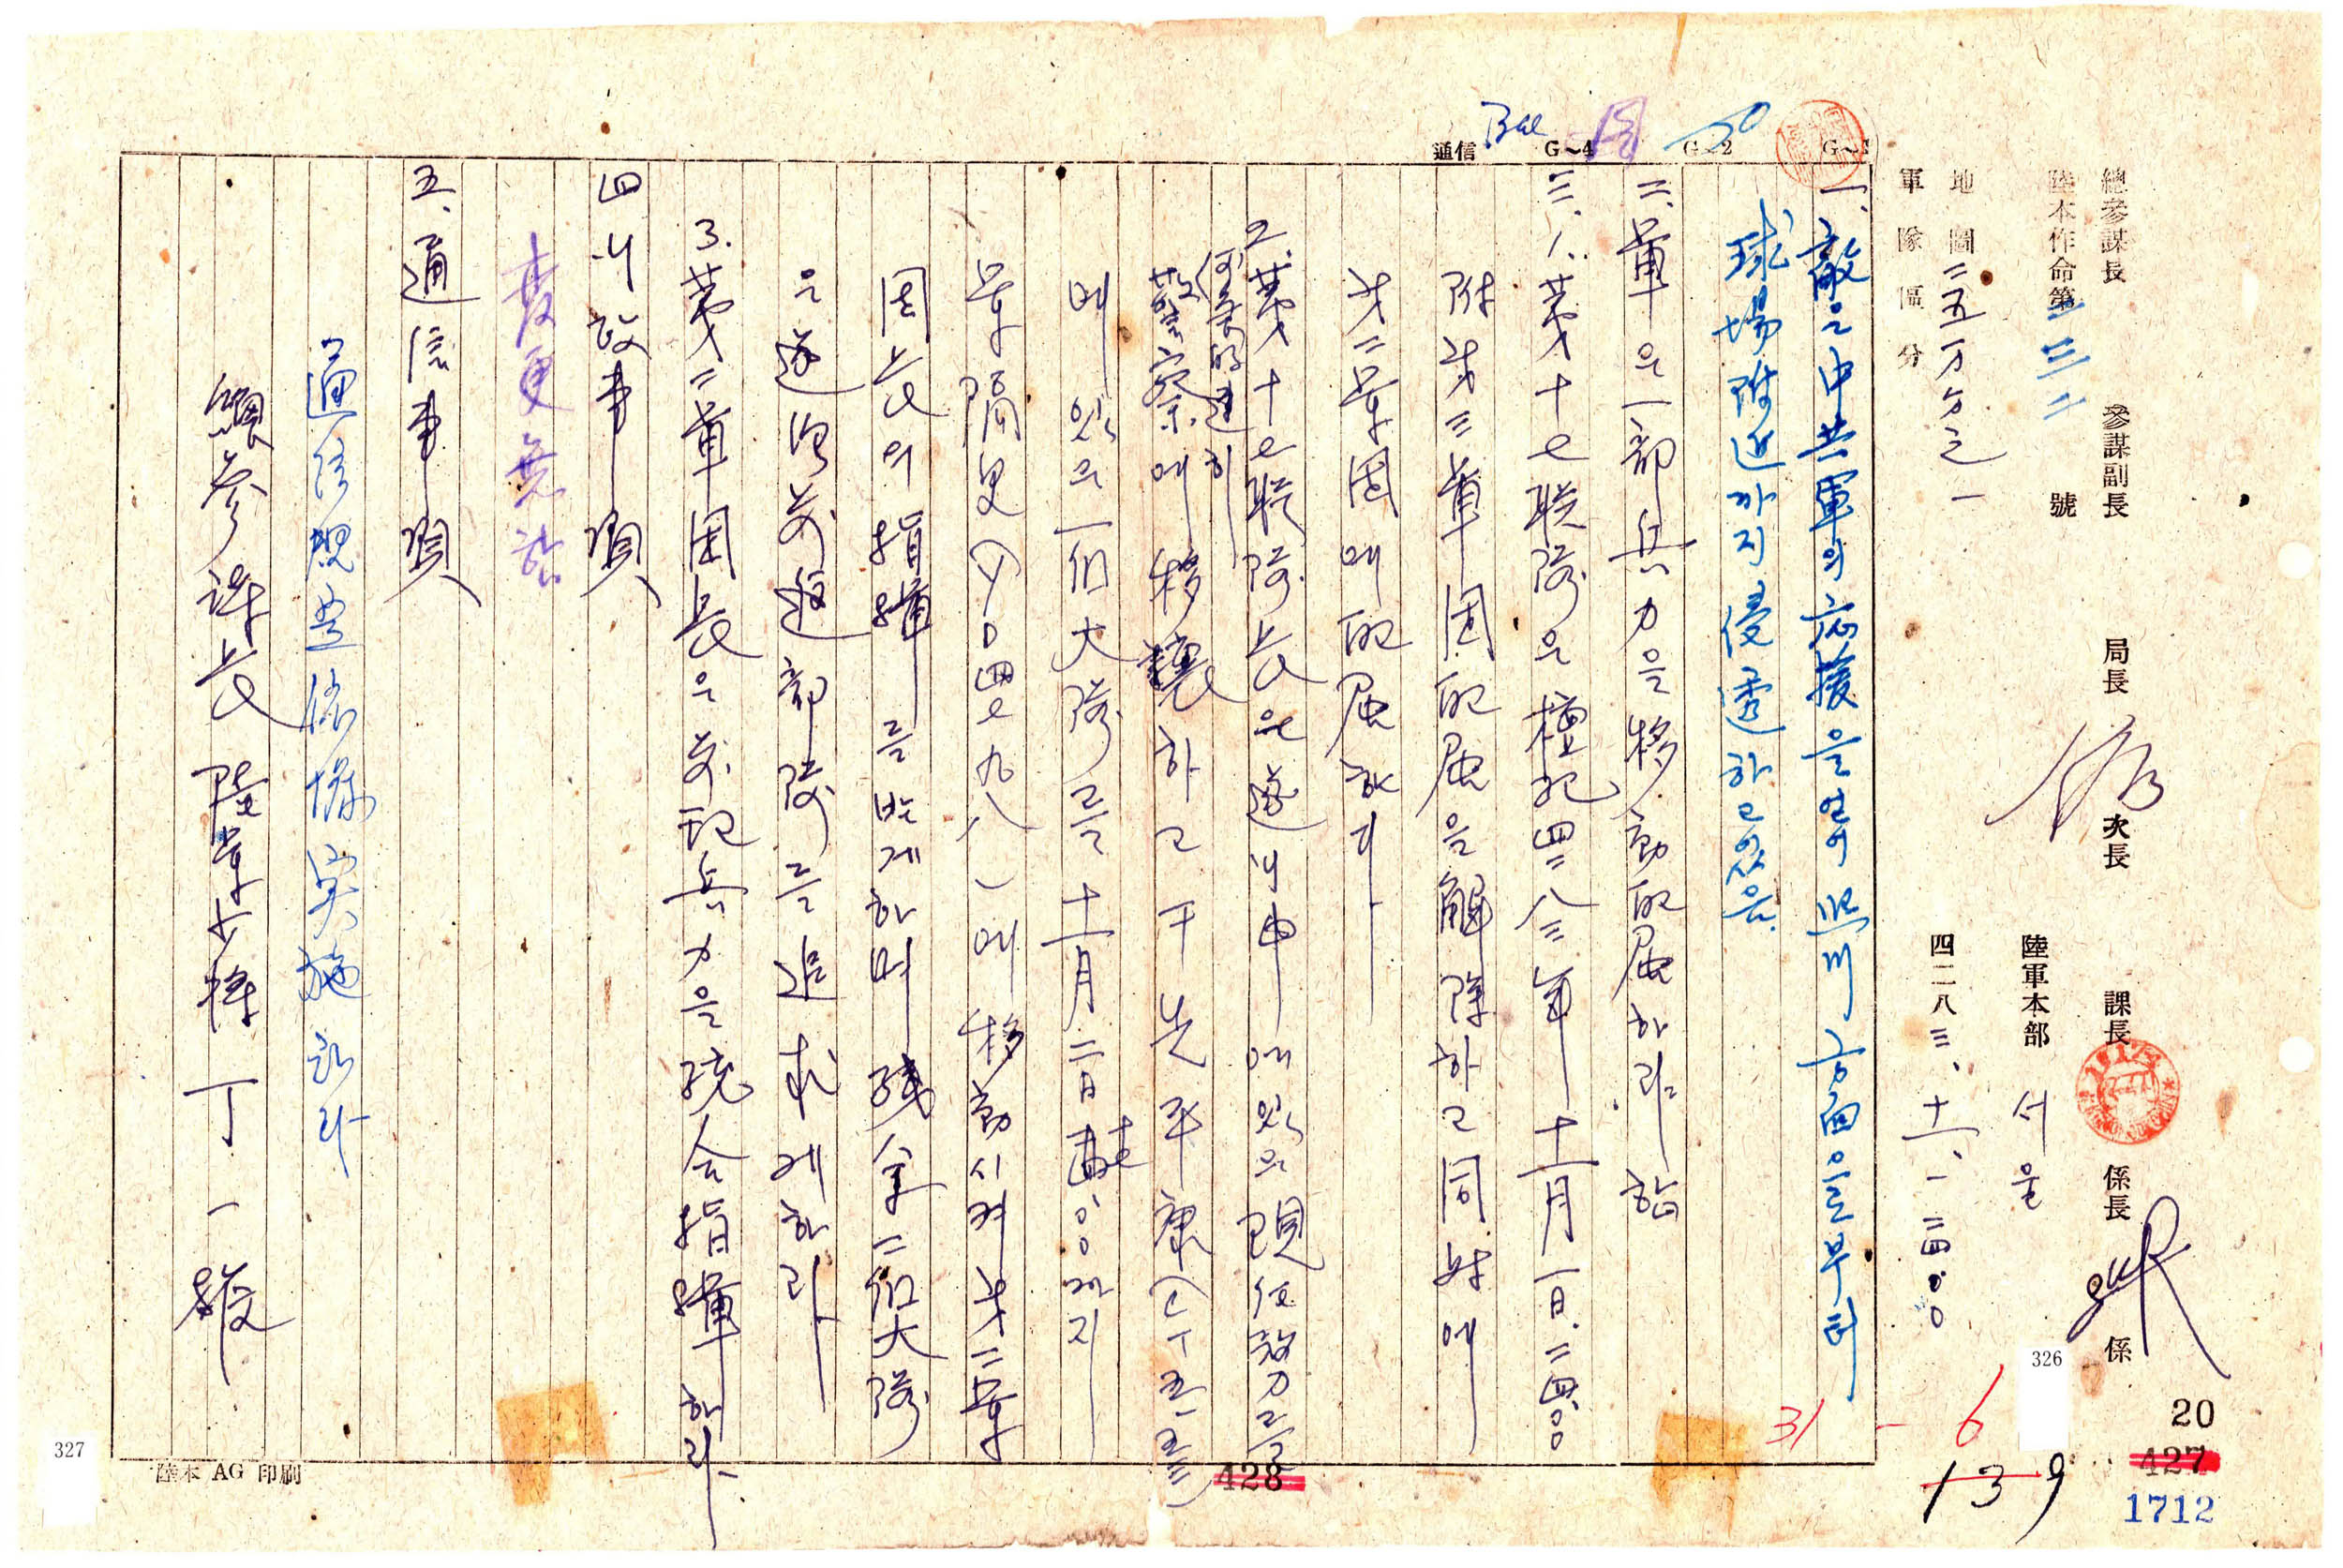 總參謀長 參謀副長 局長 次長 課長 係長 係
陸本作命第 三二二 號
陸軍本部 서울
地圖 二五万分之一
四二八三、十一、一 二四:〇〇
軍隊區分
G~2
G~4
通信
一、敵은 中共軍의 応援을 얻어 熙川 方面으로부터
球場附近까지 侵透하고 있음
二、軍은 一部兵力을 移動配屬하려 함
三、1. 第十七聯隊은 檀紀四二八三年 十一月 一日 二四:〇〇
附 第三軍團配屬을 解除하고 同時에
第二軍團에 配屬하라
2. 第十七聯隊長은 遂川 에 있는 現任務를
警察에 移讓하고 于先 平康(CT五一五三)
에 있는 一個大隊를 十一月 二日 까지
移動시켜 第二軍
團長의 指揮를 받게하며 殘余 二個大隊
은 前進部隊를 追求케하라
3. 第二軍團長은 前記兵力을 統合指揮하라
四、行政事項
變更無함
五、通信事項
通信規定 依據 實施하라
總參謀長 陸軍少將 丁一權
陸本 AG 印刷
326
327
20
427
428
1712
31 - 6
139